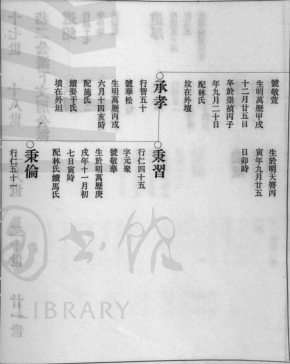 號敬萱
生明萬歷甲戌
十二月廿五日
卒於崇禎丙子
年九月二十日
配林氏
坟在外壇
生於明天啓丙
寅年九月廿五
日卯時
承孝
行智五十
號華松
生明萬歷丙戌
六月十四亥時
配施氏
續娶干氏
墳在外坦
秉習
行仁四十五
字元聚
號敬華
生於明萬歷庚
戌年十一月初
七日寅時
配林氏續馬氏
秉倫
行仁五十一
LIBRARY